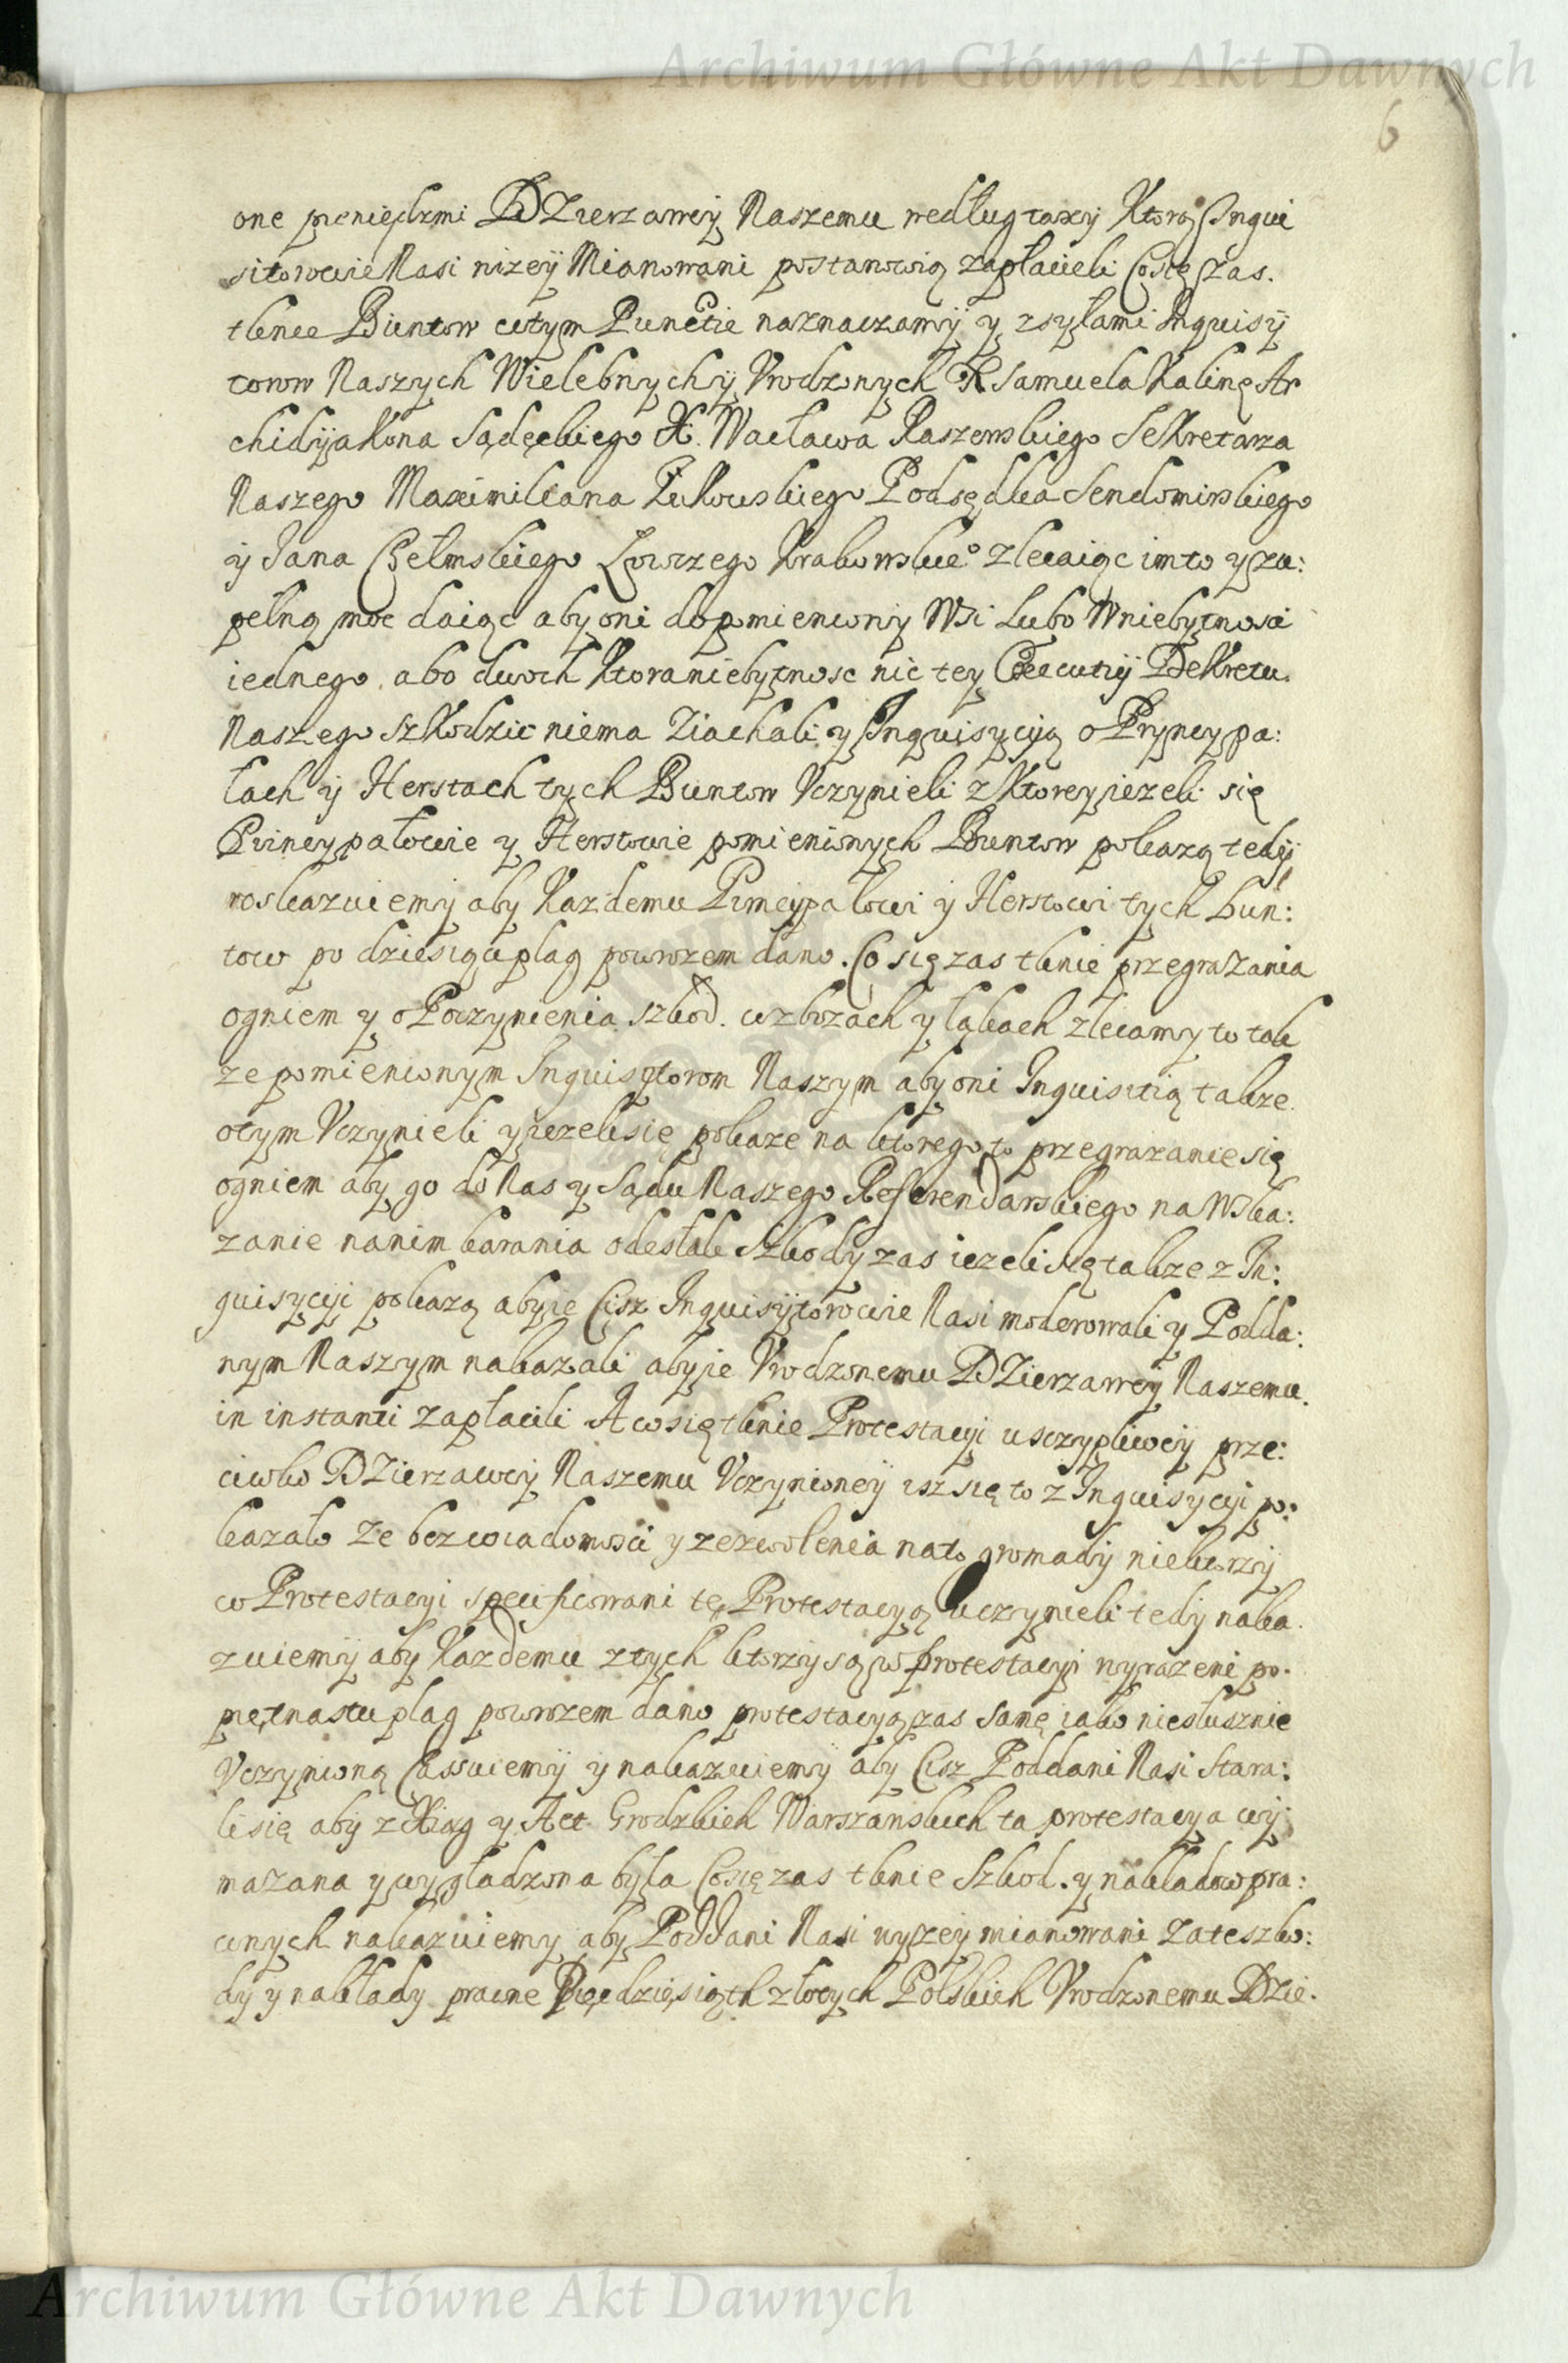 Archiwum Główne Akt Dawnych
6
one pieniędzmi DZierzawcÿ Naszemu według taxÿ Ktorą Inqui
sitorowie Nasi nizeÿ Mianowani postanowią zapłacieli Co się zas
tknie Buntow w tym Punctie naznaczamÿ y zsyłami Inquisÿ
torow Naszych Wielebnych ÿ Vrodzonych X Samuela Kalinę Ar
chidÿakona Sądęckiego X. Wacława Raszewskiego Sekretarza
Naszego Maximiliana Żukowskiego Podsędka Sendomirskiego
ÿ Jana Chełmskiego Łowczego Krakowskie° zlecaiąc im to y zu:
pełną moc daiąc aby oni do pomienionÿ Wsi Lubo W niebytnosci
iednego abo dwoch Ktora niebytnosc nic tey Executiÿ DeKretu
Naszego szkodzic niema Ziachali y Inquisycyą o Pryncypa:
łach ÿ Herstach tych Buntow Vczynieli z Ktorey jezeli się
Princypałowie y Herstowie pomienionych Buntow pokazą tedÿ
roskazuiemÿ aby Kazdemu Princÿpałowi ÿ Herstowi tych bun:
tow po dziesiąci plag powrozem dano. Co się zas tknie przegrazania
ogniem y o Poczynienia szkod. w zbozach y łąkach zlecamy to tak
ze pomienionym Inquisytorom Naszym aby oni Inquisitią takze
otym Vczynieli y jezeli się pokaze na ktorego to przegrazanie się
ogniem aby go do Nas y Sądu Naszego Referendarskiego na Wska:
zanie nanim karania odesłali Szkody zas iezeli się takze z In:
quisycÿi pokazą aby ie Cisz Inquisÿtorowie Nasi moderowali y Podda:
nym Naszym nakazali aby ie Vrodzonemu DZierzawcÿ Naszemu
in instanti zapłacili A co się tknie Protestacyi uszczypliweÿ prze:
ciwko DZierzawcÿ Naszemu Vczynioneÿ isz się to z Inquisycyi po:
kazało ze bez wiadomosci y zezwolenia nato gromadÿ niektorzÿ
w Protestacyi specificowani tę Protestacyą uczynieli tedÿ naka
zuiemÿ aby Kazdemu z tych ktorzy są w protestacyi wyrazeni po
piętnastu plag powrozem dano protestacyą zas samę iako niesłusznie
Vczynioną Cassuiemÿ y nakazuiemÿ aby Cisz Poddani Nasi Stara:
li się abÿ z Xiąg y Act Grodzkich Warszawskich ta protestacya wÿ:
mazana y wygładzona była Co się zas tknie Szkod. y nakładow pra:
wnych nakazuiemy aby Poddani Nasi wyzeÿ mianowani Za te szko:
dÿ y nakłady prawne Pięcdziesiąth złotych Polskich Vrodzonemu Dzie
Archiwum Główne Akt Dawnych